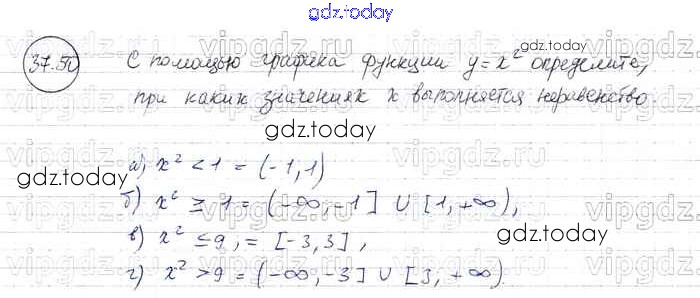 gdz.today
37.50 С помощью графика функции y = x² определите,
gdz.today
при каких значениях x выполняется неравенство.
gdz.today
а) x² < 1 = (-1, 1)
gdz.today
б) x² ≥ 1 = (-∞, -1] ∪ [1, +∞),
gdz.today
в) x² ≤ 9, = [-3, 3],
г) x² > 9 = (-∞, -3] ∪ [3, +∞)
gdz.today
vipgdz.com